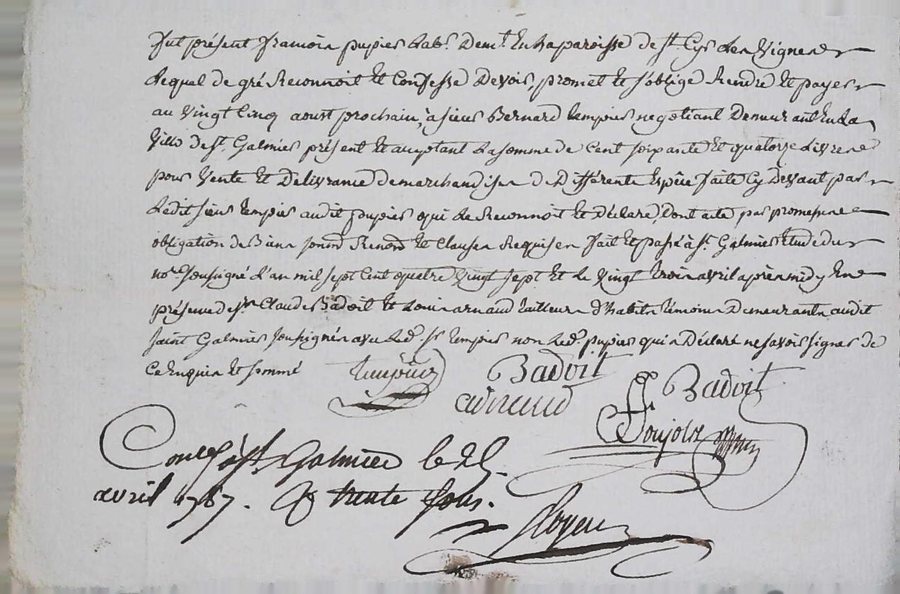 fut présent françois pupier lab.r dem.t en la paroisse de st Cyr les Vignes
Lequel de gré Reconnoit et Confesse Devoir, promet et s'oblige Rendre et payer
au Vingt Cinq aoust prochain, à sieur Bernard tempier negotiant Demeurant en la
Ville de st Galmier présent et acceptant La somme de Cent soixante et quatorze Livres
pour Vente et Délivrance de marchandises de Différente Espèce faite Cy Devant par
Ledit sieur tempier audit pupier qui Le Reconnoit et Déclare, Dont acte par promesse
obligation de Biens soum Renon et Clauses Requises fait et passé à st Galmier Etude du
no.re soussigné L'an mil sept Cent quatre Vingt sept et Le Vingt trois avril après midy En
présence de sr Claude Badoit et Louis arnaud tailleur d'habits témoins Demeurants audit
saint Galmier soussignés avec Led. sr tempier non Led. pupier qui a Déclaré ne savoir signer de
Ce Enquis et sommé
tempier Badoit Badoit
arnaud
Poujolz
Conllé à st Galmier le
avril 1787. trente sous.